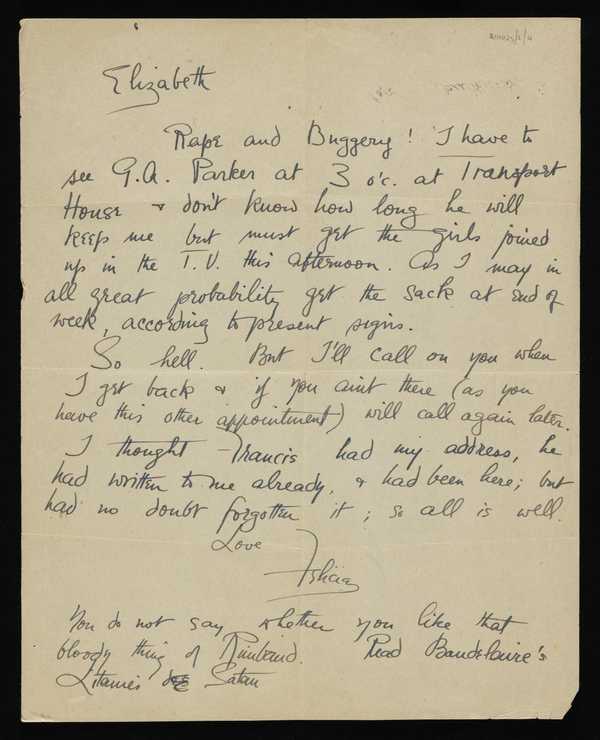 Elizabeth
Rape and Buggery! I have to
see G.A. Parker at 3 o'c. at Transport
House & don't know how long he will
keep me but must get the girls joined
up in the T.U. this afternoon. As I may in
all great probability get the sack at end of
week, according to present signs.
So hell. But I'll call on you when
I get back & if you aint there (as you
have this other appointment) will call again later.
I thought Francis had my address, he
had written to me already, & had been here; but
had no doubt forgotten it; so all is well.
Love
Felicia
You do not say whether you like that
bloody thing of Rimbaud. Read Baudelaire's
Litanies de Satan